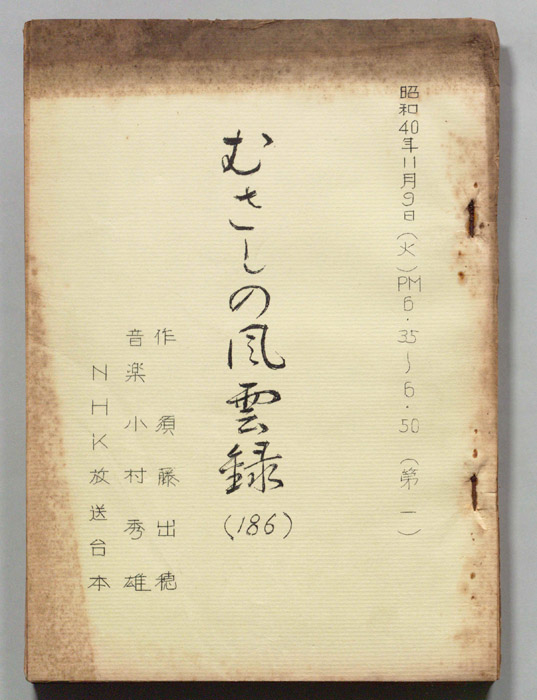 昭和40年11月9日(火)PM6.35~6.50(第一)
むさしの風雲録
(186)
作 須藤出穂
音楽 小村秀雄
NHK放送台本